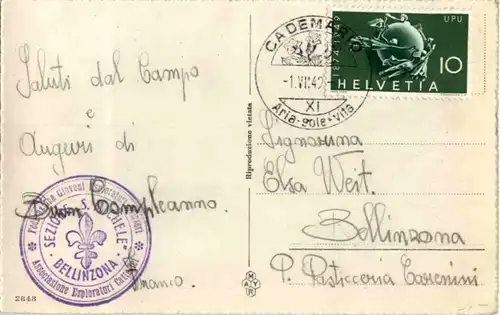 Saluti dal Campo
e
Auguri di
Buon Compleanno.
Franco.
SEZIONE S. MICHELE
· BELLINZONA ·
Associazione Esploratori
2848
Riproduzione vietata
MAYR
CADEMARIO
-1.VII.49
XI
Aria-sole-vita
1874 1949
UPU
10
HELVETIA
Signorina
Elsa Weit.
Bellinzona
P. Pasticceria